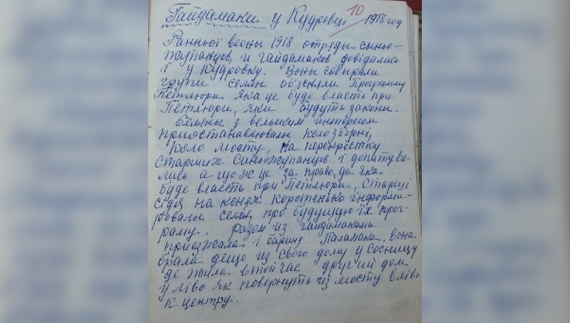 Гайдамаки у Кудровці 1918 год
10
Ранньої весны 1918 отряды синьо-
жупанцов, и гайдамаков довідались
і у Кудровку. Воны собирали
групи селян об'єняли Программу
Петлюри. Яка це буде власть при
Петлюри, яки будуть законы.
Селяны з великим интересом
приостанавлювали коло зборні,
коло мосту, на перекрёстку
старших Синьожупанцов і допитува-
лись а що ж це за право, да яка
буде власть при Петлюри, Старші
сідя на конях коротенько інформи-
ровали селян, про будущую їх прог-
раму. Разом из гайдамаками
приезжала і барыня Палажка, вона
брала дещо из свого дому у Сосницу
де жила в той час другий дом
у ліво як повернуть из мосту вліво
к центру.